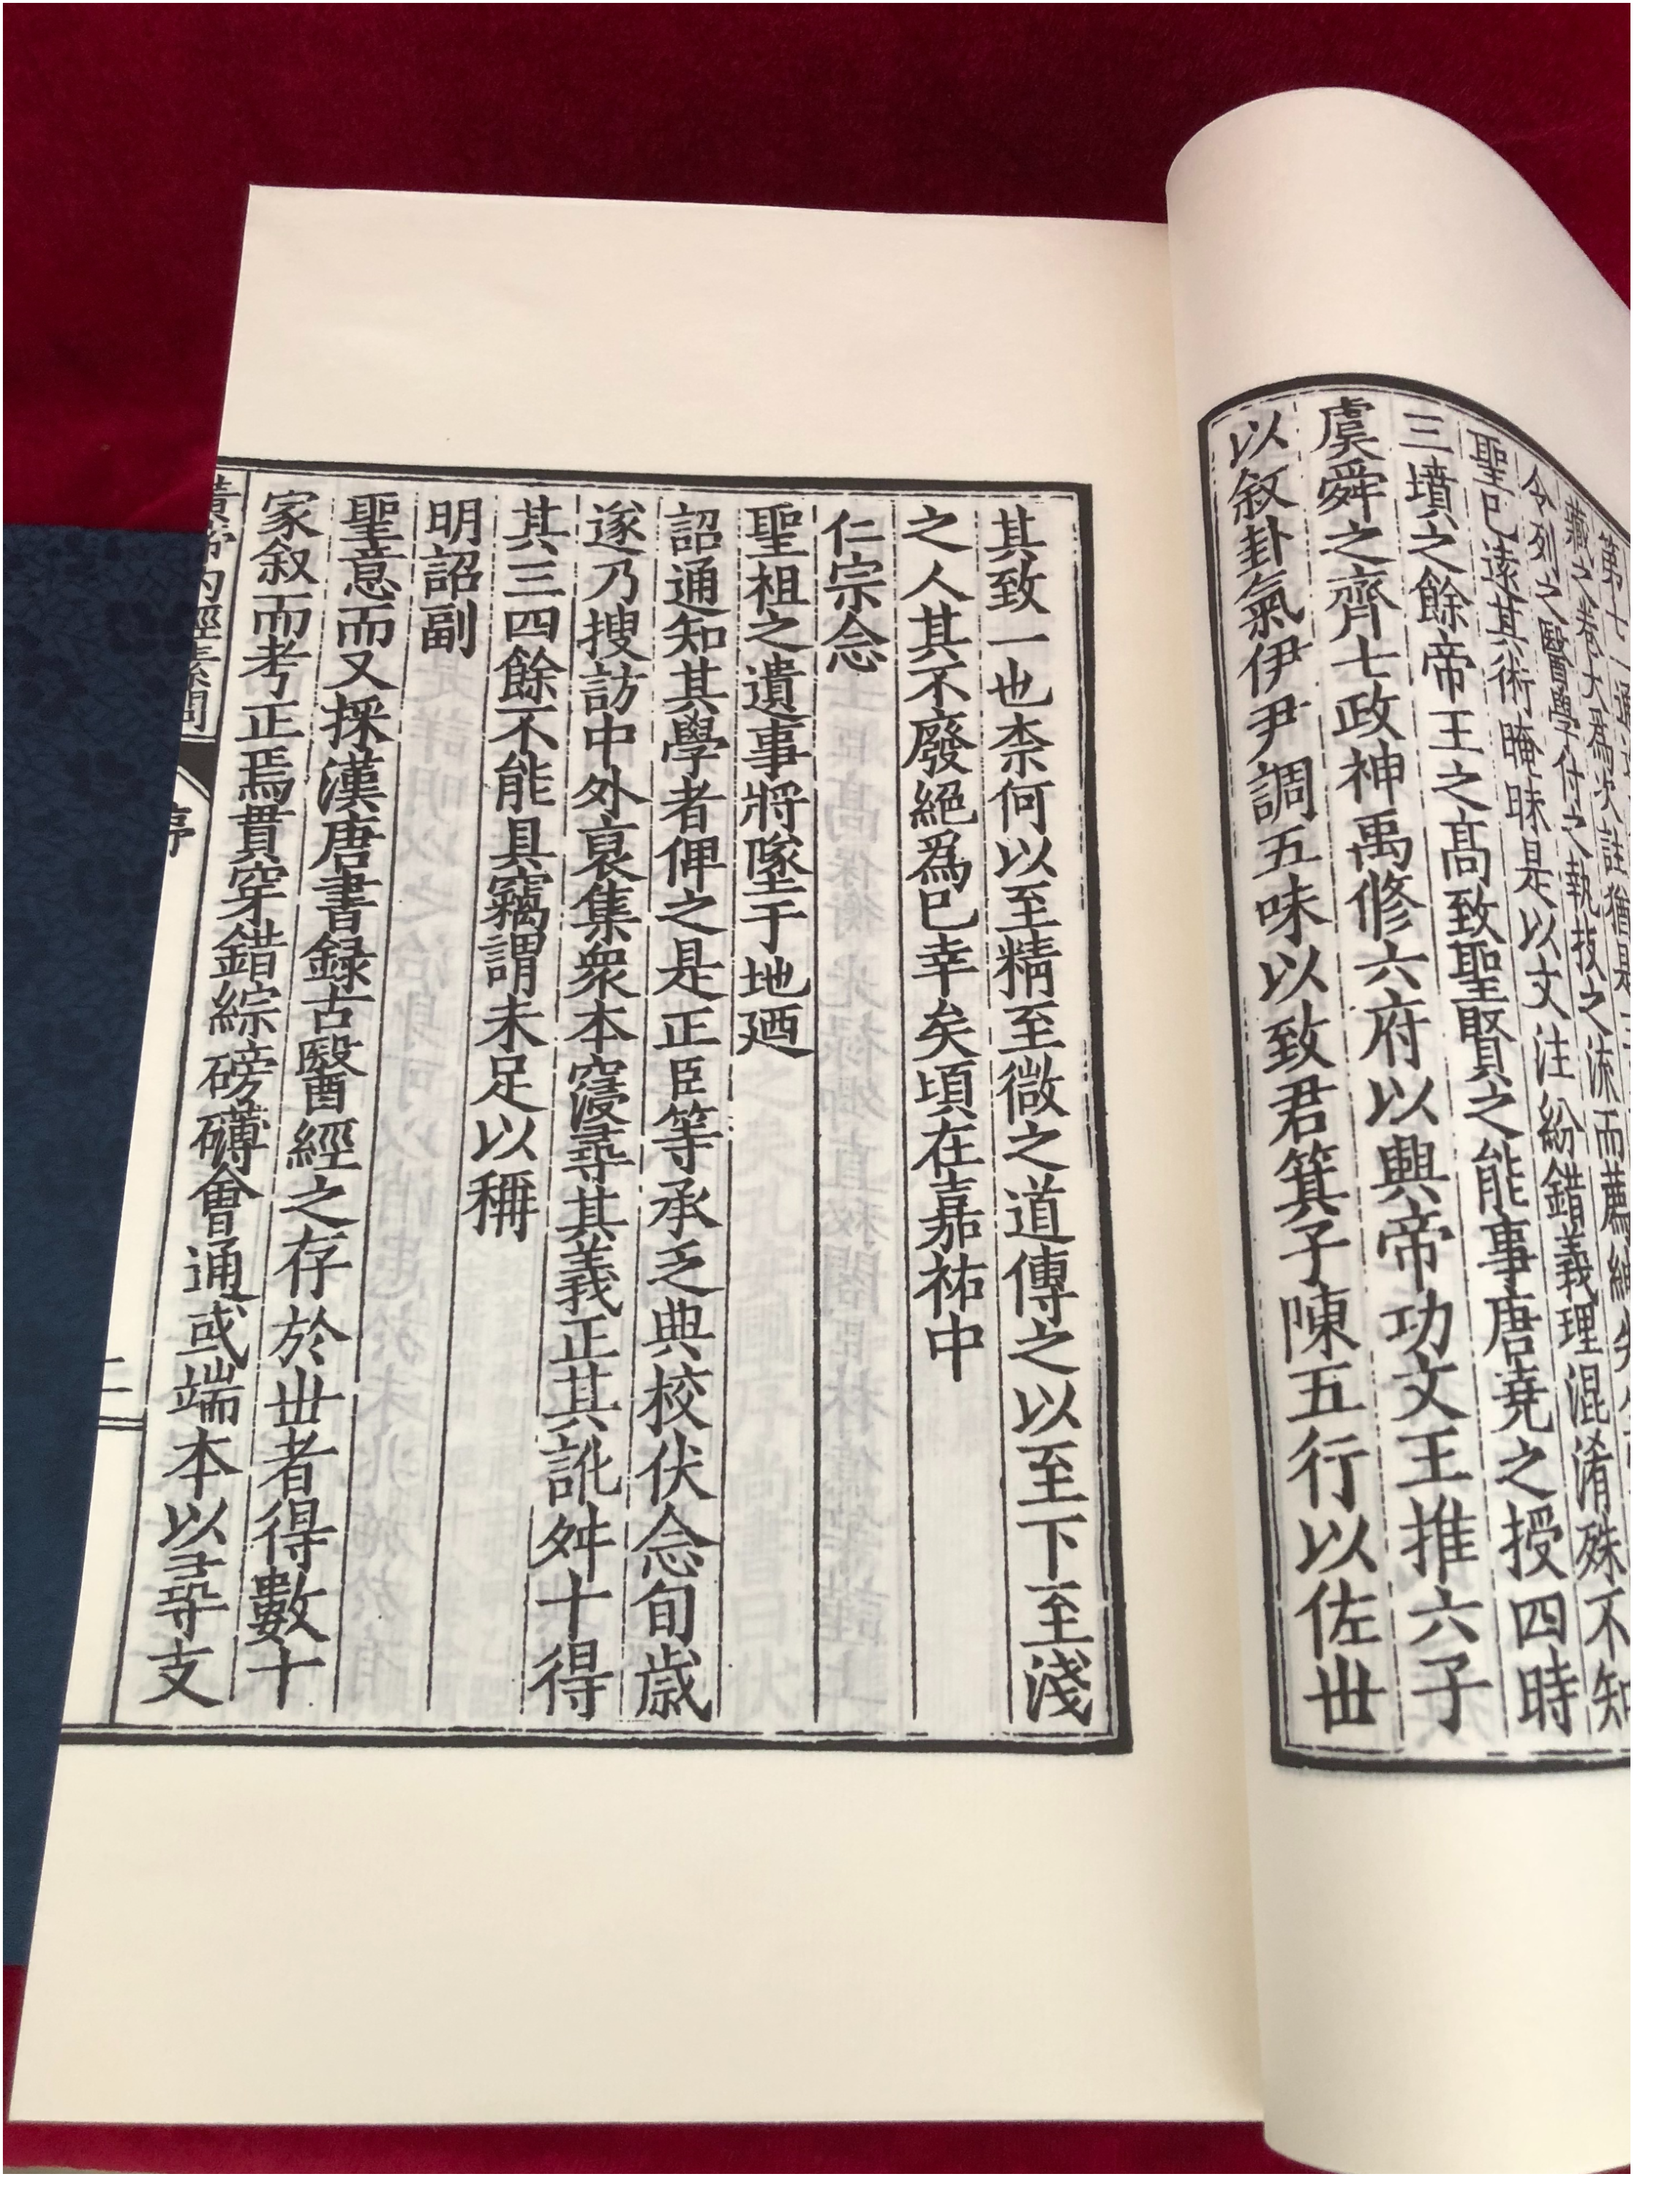 令列之醫學付之執技之流而薦紳先
聖已遠其術晻昧是以文注紛錯義理混淆殊不知
三墳之餘帝王之髙致聖賢之能事唐堯之授四時
虞舜之齊七政神禹修六府以興帝功文王推六子
以敘卦氣伊尹調五味以致君箕子陳五行以佐丗
其致一也柰何以至精至微之道傳之以至下至淺
之人其不廢絕爲已幸矣頃在嘉祐中
仁宗念
聖祖之遺事將墜于地廼
詔通知其學者俾之是正臣等承乏典校伏念旬歳
遂乃搜訪中外裒集衆本寖尋其義正其訛舛十得
其三四餘不能具竊謂未足以稱
明詔副
聖意而又採漢唐書録古醫經之存於丗者得數十
家叙而考正焉貫穿錯綜磅礴會通或端本以尋支
黃帝內經素問
序
二